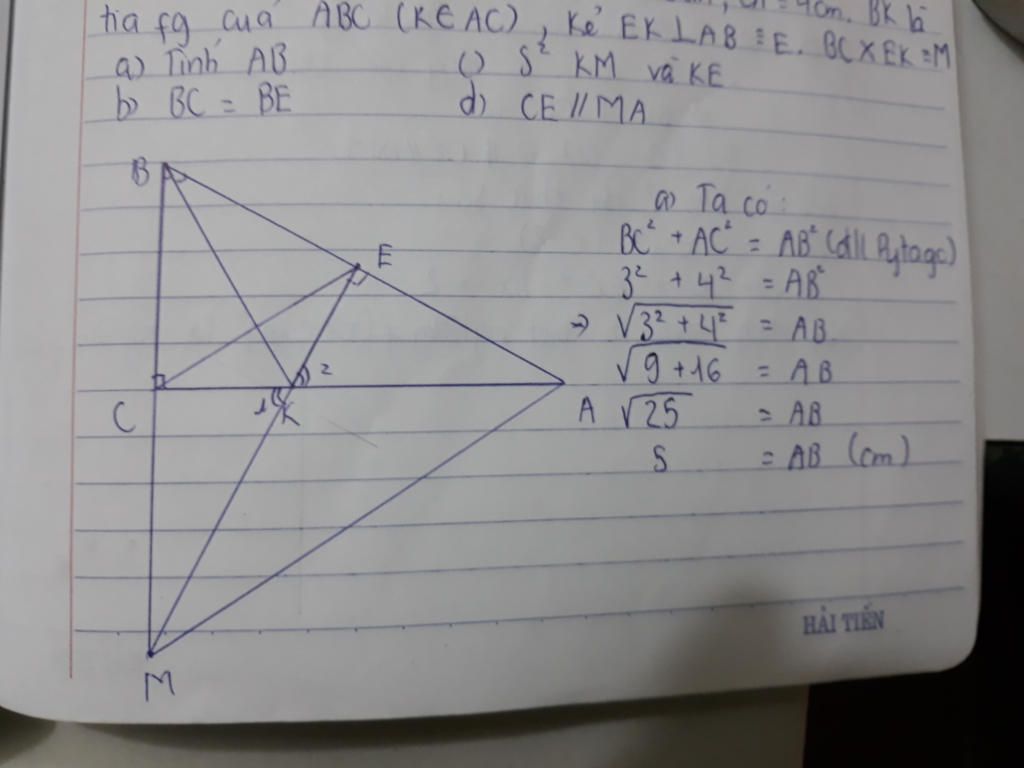 = 4cm. BK là
tia fg của ABC (K∈AC), kẻ EK⊥AB ≡ E. BC×EK=M
a) Tính AB
c) S² KM và KE
b) BC = BE
d) CE // MA
B
E
2
C
1
K
A
M
a) Ta có:
BC² + AC² = AB² (đ/l Pytago)
3² + 4² = AB²
=> √3² + 4² = AB
√9 + 16 = AB
√25 = AB
5 = AB (cm)
HẢI TIẾN